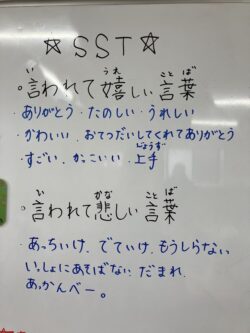 ☆SST☆
・言われて嬉しい言葉
・ありがとう・たのしい・うれしい
・かわいい・おてつだいしてくれてありがとう
・すごい・かっこいい・上手
・言われて悲しい言葉
・あっちいけ、でていけ、もうしらない
いっしょにあそばない、だまれ、
あっかんべー。